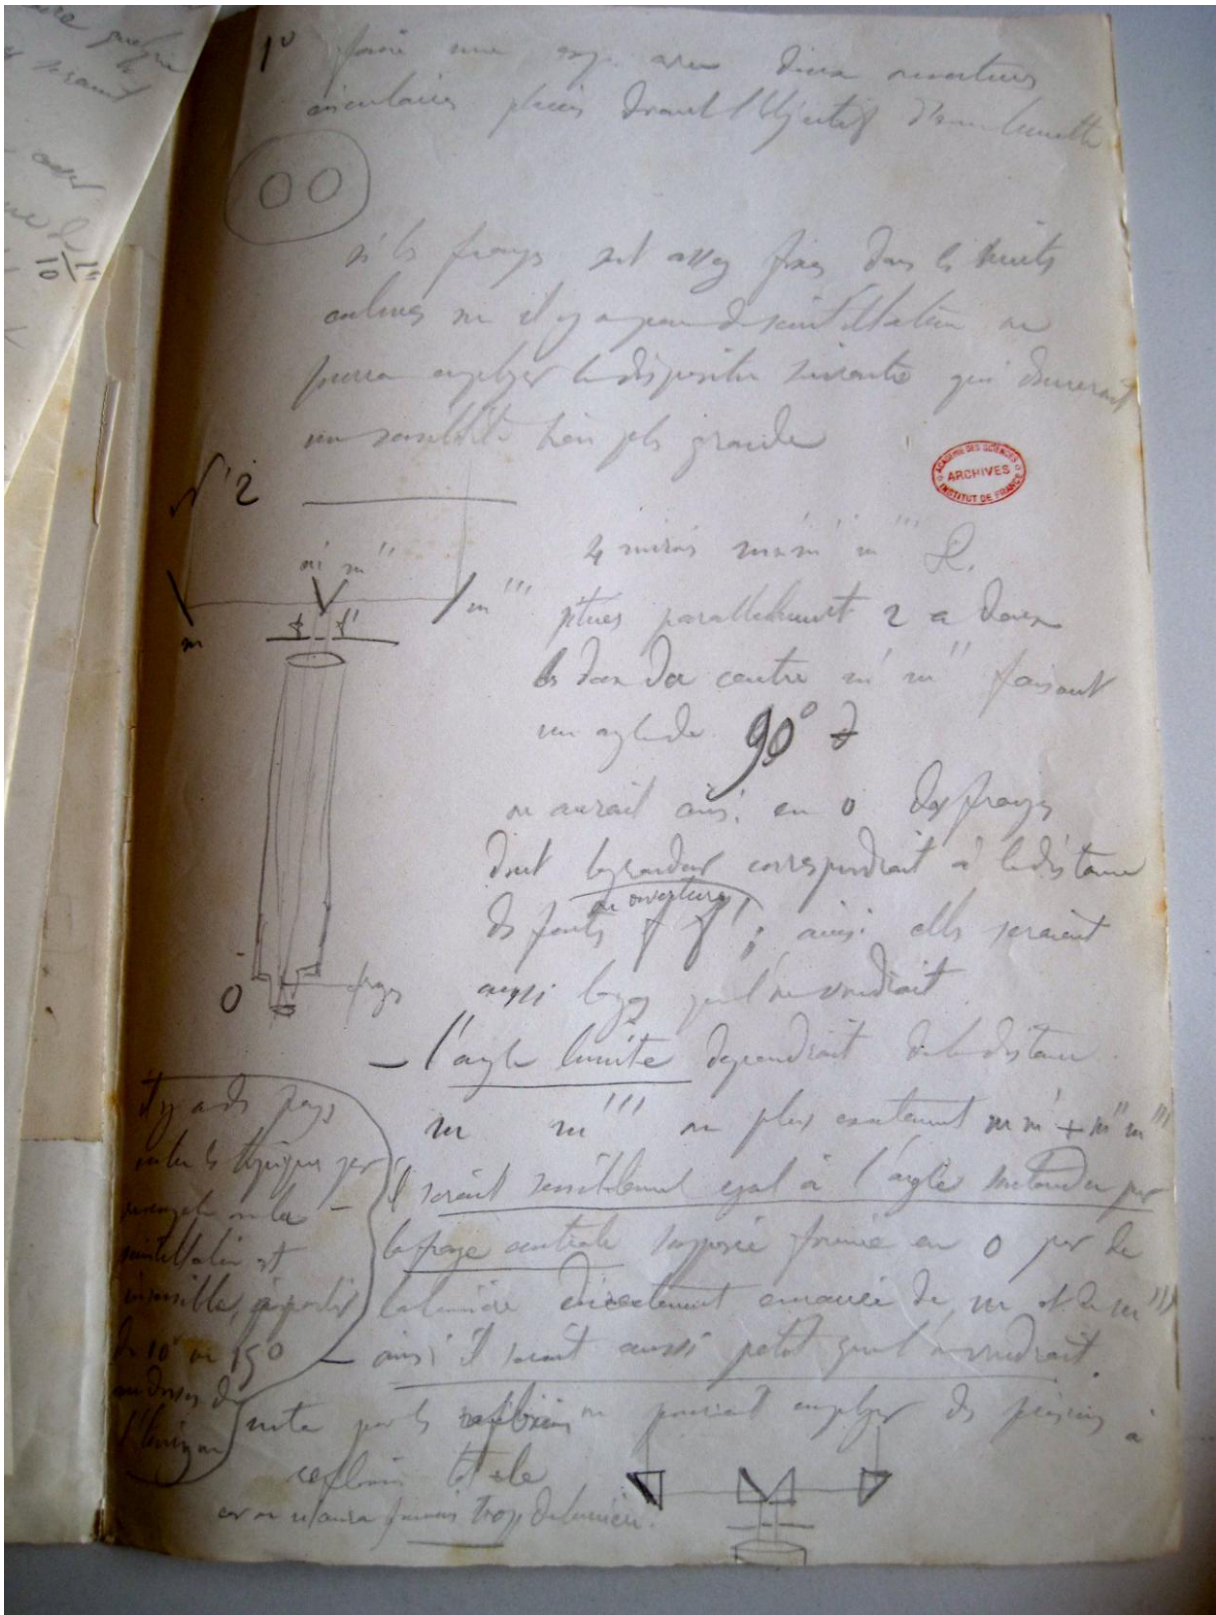 1° faire une exp. avec deux ouvertures
circulaires placées devant l'objectif d'une lunette
si les franges sont assez fixes dans les nuits
calmes où il y a peu de scintillation on
pourra employer la disposition suivante qui donnerait
une sensibilité bien plus grande
N° 2
ACADEMIE DES SCIENCES
ARCHIVES
INSTITUT DE FRANCE
4 miroirs m m' m'' m'''
m' m''
m
m'''
f f'
parallelement 2 a deux
les deux du centre m' m'' faisant
un angle de 90°
on aurait ainsi en O des franges
dont la grandeur correspondrait à la distance
ou ouvertures
des fentes f f' ; ainsi elles seraient
aussi larges qu'on voudrait
O
franges
– l'angle limite dependrait de la distance
m m''' ou plus exactement m m' + m'' m'''
il serait sensiblement egal à l'angle sous-tendu par
la frange centrale supposée formée en O par de
la lumière directement emanée de m et de m'''
– ainsi il serait aussi petit qu'on voudrait.
il y a des pays
entre les tropiques par
exemple où la –
scintillation est
insensible, à partir
de 10° ou 15°
au dessus de
l'horizon
nota pour les reflexions on pourrait employer des prismes à
reflexion totale
car on n'aura jamais trop de lumière.